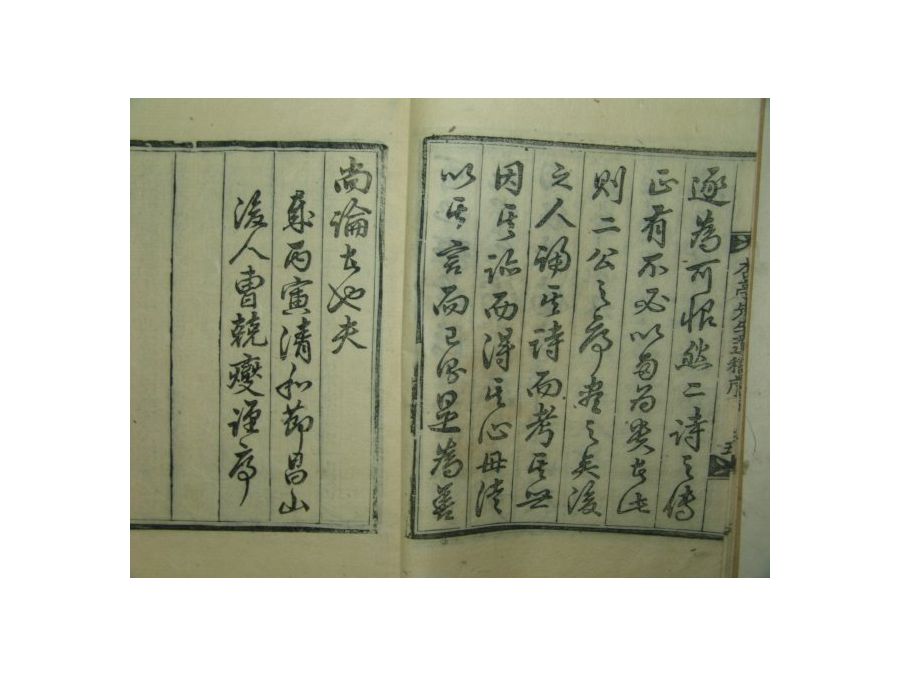 遂為可恨然二詩之傳
正有不必以多為貴者此
則二公之序盡之矣後
之人誦其詩而考其世
因其跡而得其心毋徒
以其言而已則是為善
尚論者也夫
歲丙寅清和節昌山
後人曹兢燮謹序
先生遺稿序